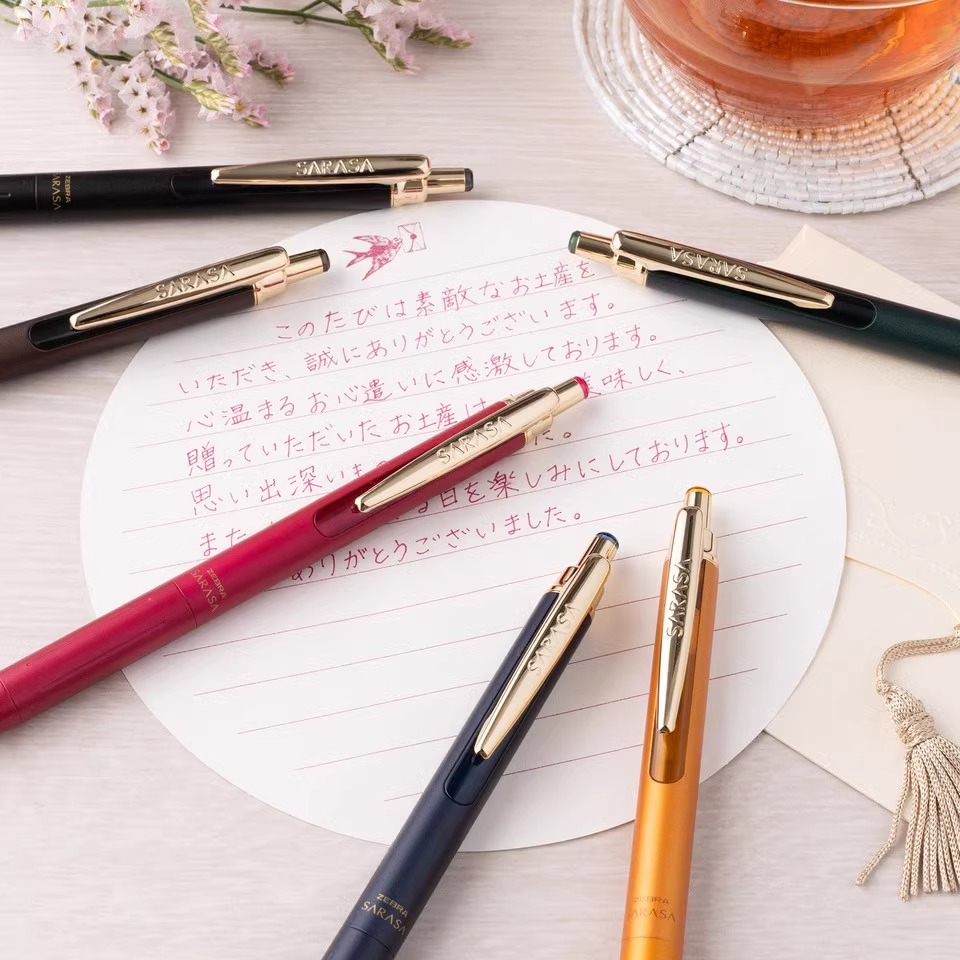 SARASA
ZEBRA
SARASA
SARASA
SARASA
このたびは素敵なお土産を
いただき、誠にありがとうございます。
心温まるお心遣いに感激しております。
贈っていただいたお土産は 美味しく、
思い出深い た。
また 日を楽しみにしております。
ありがとうございました。
SARASA
ZEBRA
SARASA
SARASA
ZEBRA
SARASA
SARASA
ZEBRA
SARASA